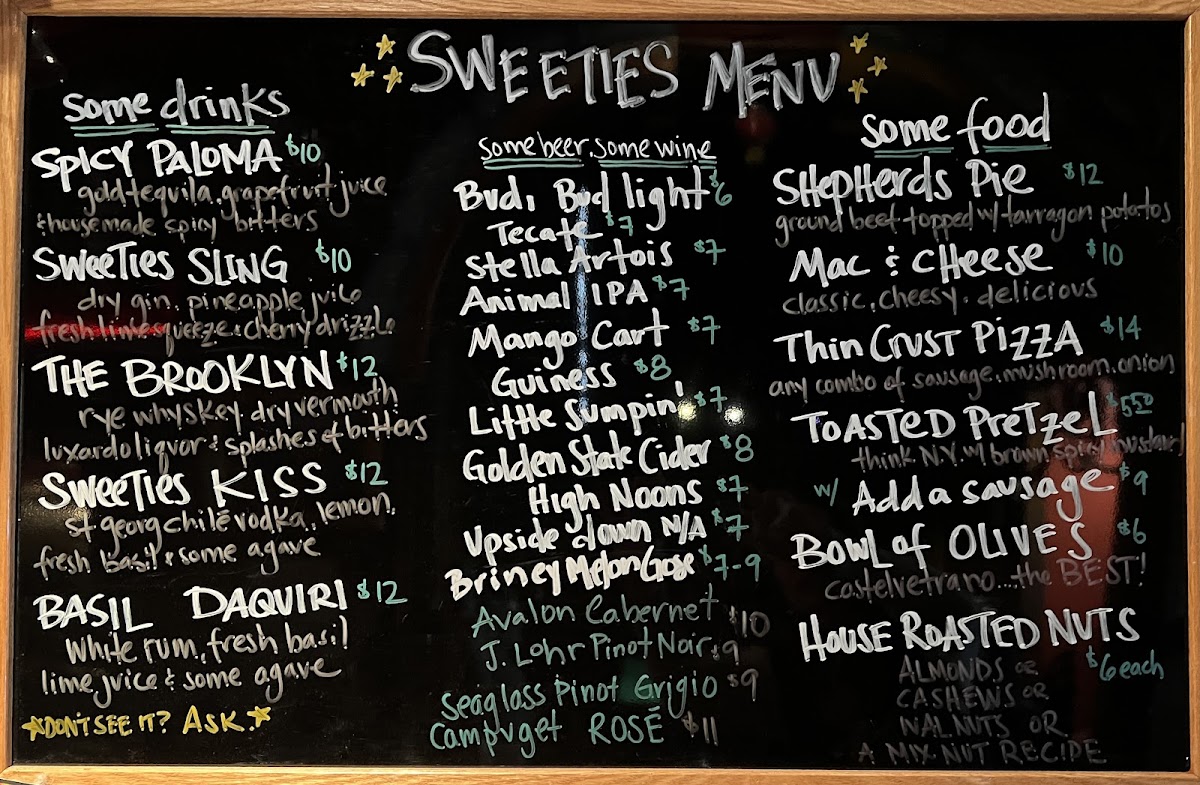 SWEETIES MENU
some drinks
SPICY PALOMA $10
gold tequila, grapefruit juice
& housemade spicy bitters
SWEETIES SLING $10
dry gin, pineapple juice
fresh lime squeeze & cherry drizzle
THE BROOKLYN $12
rye whyskey, dry vermouth
luxardo liquor & splashes of bitters
SWEETIES KISS $12
st georg chilé vodka, lemon,
fresh basil & some agave
BASIL DAQUIRI $12
White rum, fresh basil
lime juice & some agave
DON'T SEE IT? ASK.
some beer, some wine
Bud, Bud light $6
Tecate $7
Stella Artois $7
Animal IPA $7
Mango Cart $7
Guiness $8
Little Sumpin' $7
Golden State Cider $8
High Noons $7
Upside down N/A $7
Briney Melon Gose $7-9
Avalon Cabernet $10
J. Lohr Pinot Noir $9
Seaglass Pinot Grigio $9
Campuget ROSÉ $11
some food
SHEPHERDS PIE $12
ground beef topped w/ tarragon potatos
MAC & CHEESE $10
classic, cheesy, delicious
Thin CRUST PIZZA $14
any combo of sausage, mushroom, onion
TOASTED PRETZEL $5.50
think N.Y. w/ brown spicy mustard
w/ Add a sausage $9
BOWL of OLIVES $6
castelvetrano...the BEST!
HOUSE ROASTED NUTS
$6 each
ALMONDS OR
CASHEWS OR
WALNUTS OR
A MIX-NUT RECIPE